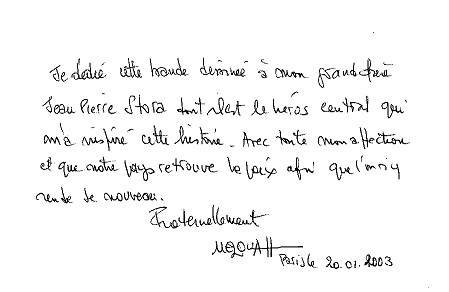 Je dédié cette bande dessinée à mon grand frère
Jean Pierre Stora dont il est le héros central qui
m'a inspiré cette histoire. Avec toute mon affection
et que notre pays retrouve la paix afin que l'on s'y
rende de nouveau.
Fraternellement
Paris le 20.01.2003